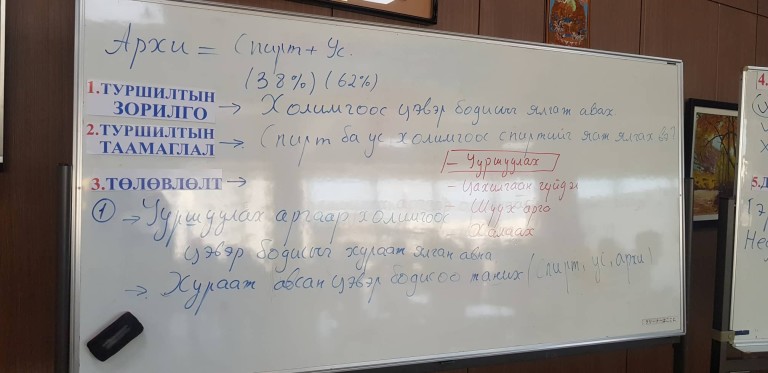 Архи = Спирт + Ус.
(38%) (62%)
1.ТУРШИЛТЫН ЗОРИЛГО → Холимгоос цэвэр бодисыг ялгаж авах.
2.ТУРШИЛТЫН ТААМАГЛАЛ → Спирт ба ус холимгоос спиртийг яаж ялгах вэ?
- Ууршуулах
3.ТӨЛӨВЛӨЛТ →
- Цахилгаан гүйдэл
- Шүүх арга
- Халаах
① → Ууршуулах аргаар холимгоос
цэвэр бодисыг хурааж ялган авна
→ Хурааж авсан цэвэр бодисоо таних (Спирт, ус, архи)
4.
5.